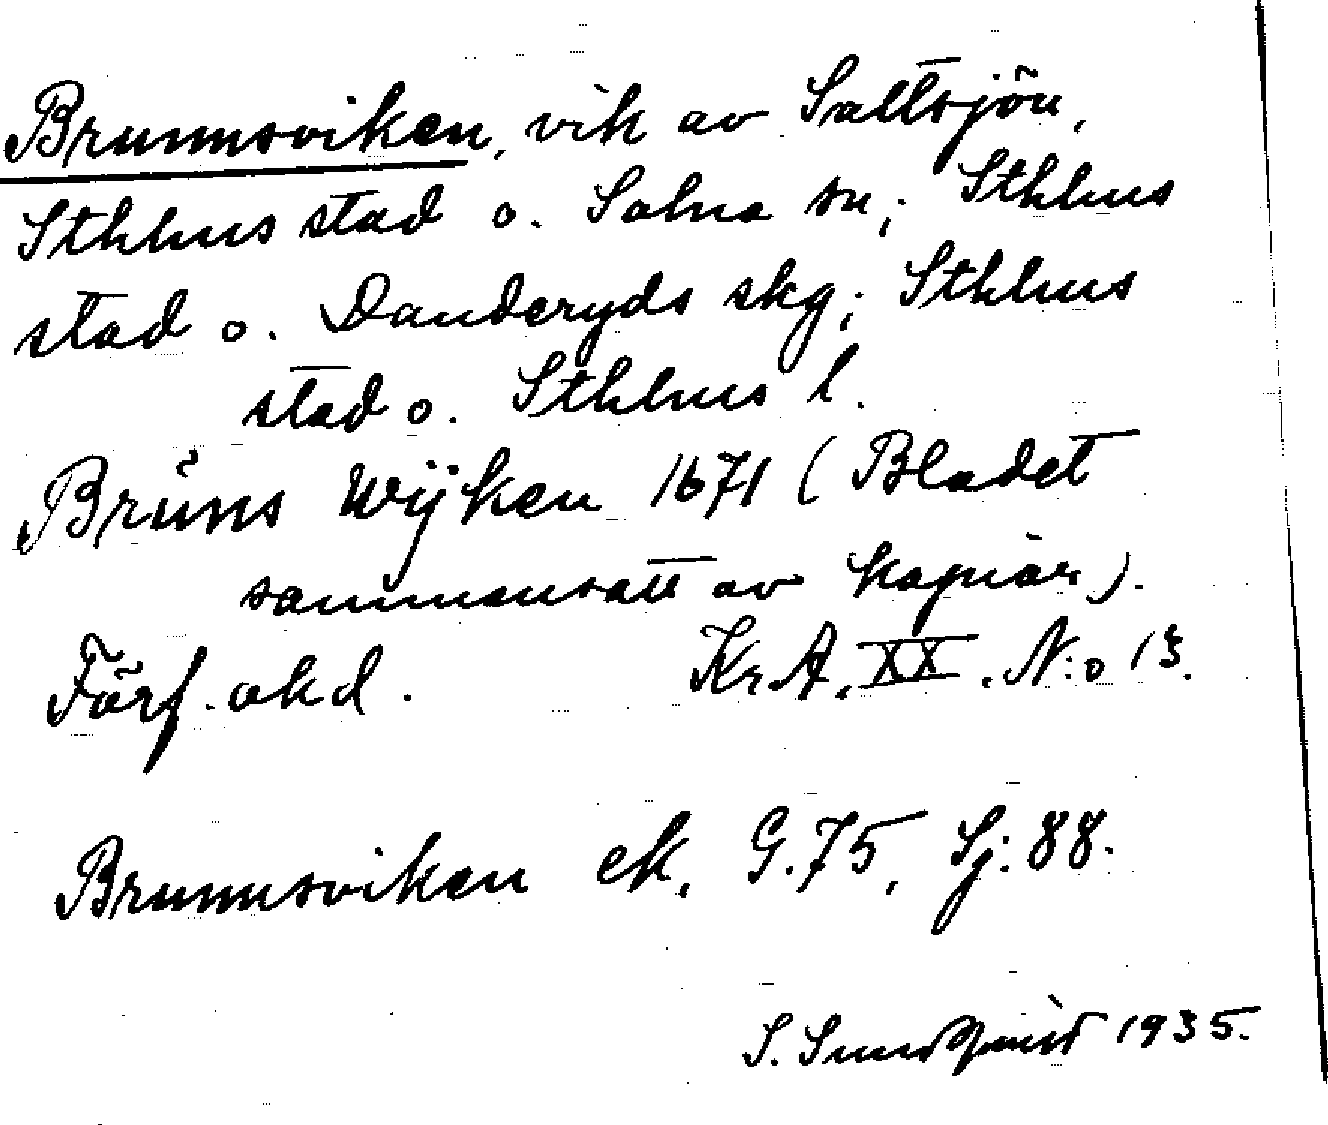 Brunnsviken, vik av Saltsjön,
Sthlms stad o. Solna sn; Sthlms
stad o. Danderyds skg; Sthlms
stad o. Sthlms l.
Brŭns Wijken 1671 (Bladet
sammansatt av kopior).
Förf. okd. Kr.A. XX. N:o 13.
Brunnsviken ek. G. 75, Sj: 88.
S. Sundqvist 1935.